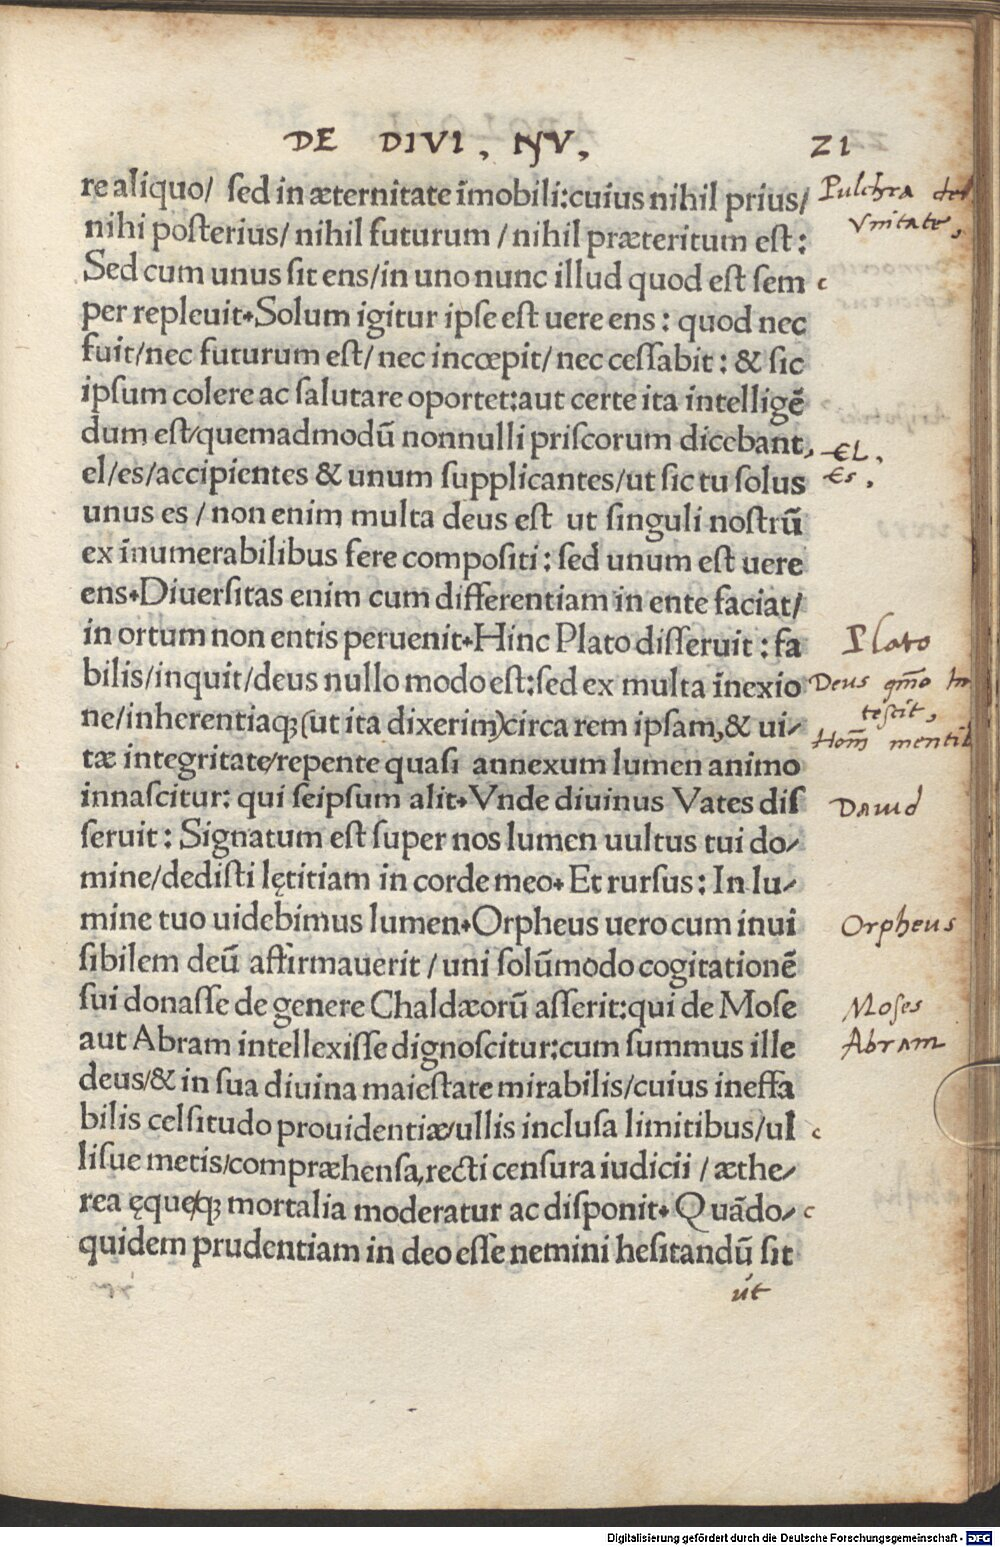 DE DIVI. NV. 21
re aliquo/ sed in æternitate īmobili:cuius nihil prius/
nihi posterius/ nihil futurum / nihil præteritum est:
Sed cum unus sit ens/in uno nunc illud quod est sem
per repleuit.Solum igitur ipse est uere ens: quod nec
fuit/nec futurum est/ nec incœpit/ nec cessabit: & sic
ipsum colere ac salutare oportet:aut certe ita intelligē
dum est/quemadmodū nonnulli priscorum dicebant,
el/es/accipientes & unum supplicantes/ut sic tu solus
unus es / non enim multa deus est ut singuli nostrū
ex īnumerabilibus fere compositi: sed unum est uere
ens.Diuersitas enim cum differentiam in ente faciat/
in ortum non entis peruenit.Hinc Plato disseruit: fa
bilis/inquit/deus nullo modo est:sed ex multa īnexio
ne/inherentiaq;(ut ita dixerim)circa rem ipsam,& ui-
tæ integritate/repente quasi annexum lumen animo
innascitur: qui seipsum alit.Vnde diuinus Vates dis
seruit: Signatum est super nos lumen uultus tui do-
mine/dedisti lętitiam in corde meo.Et rursus: In lu-
mine tuo uidebimus lumen.Orpheus uero cum inui
sibilem deū affirmauerit / uni solūmodo cogitationē
sui donasse de genere Chaldæorū asserit:qui de Mose
aut Abram intellexisse dignoscitur:cum summus ille
deus/& in sua diuina maiestate mirabilis/cuius ineffa
bilis celsitudo prouidentiæ/ullis inclusa limitibus/ul
lisue metis/compræhensa,recti censura iudicii / æthe-
rea ęque/q; mortalia moderatur ac disponit. Quādo-
quidem prudentiam in deo esse nemini hesitandū sit
ut
Pulchra de
Vnitate,
EL.
Es,
Plato
Deus qm̄o
tescit,
Hom̄
Dauid
Orpheus
Moses
Abram
Digitalisierung gefördert durch die Deutsche Forschungsgemeinschaft - DFG